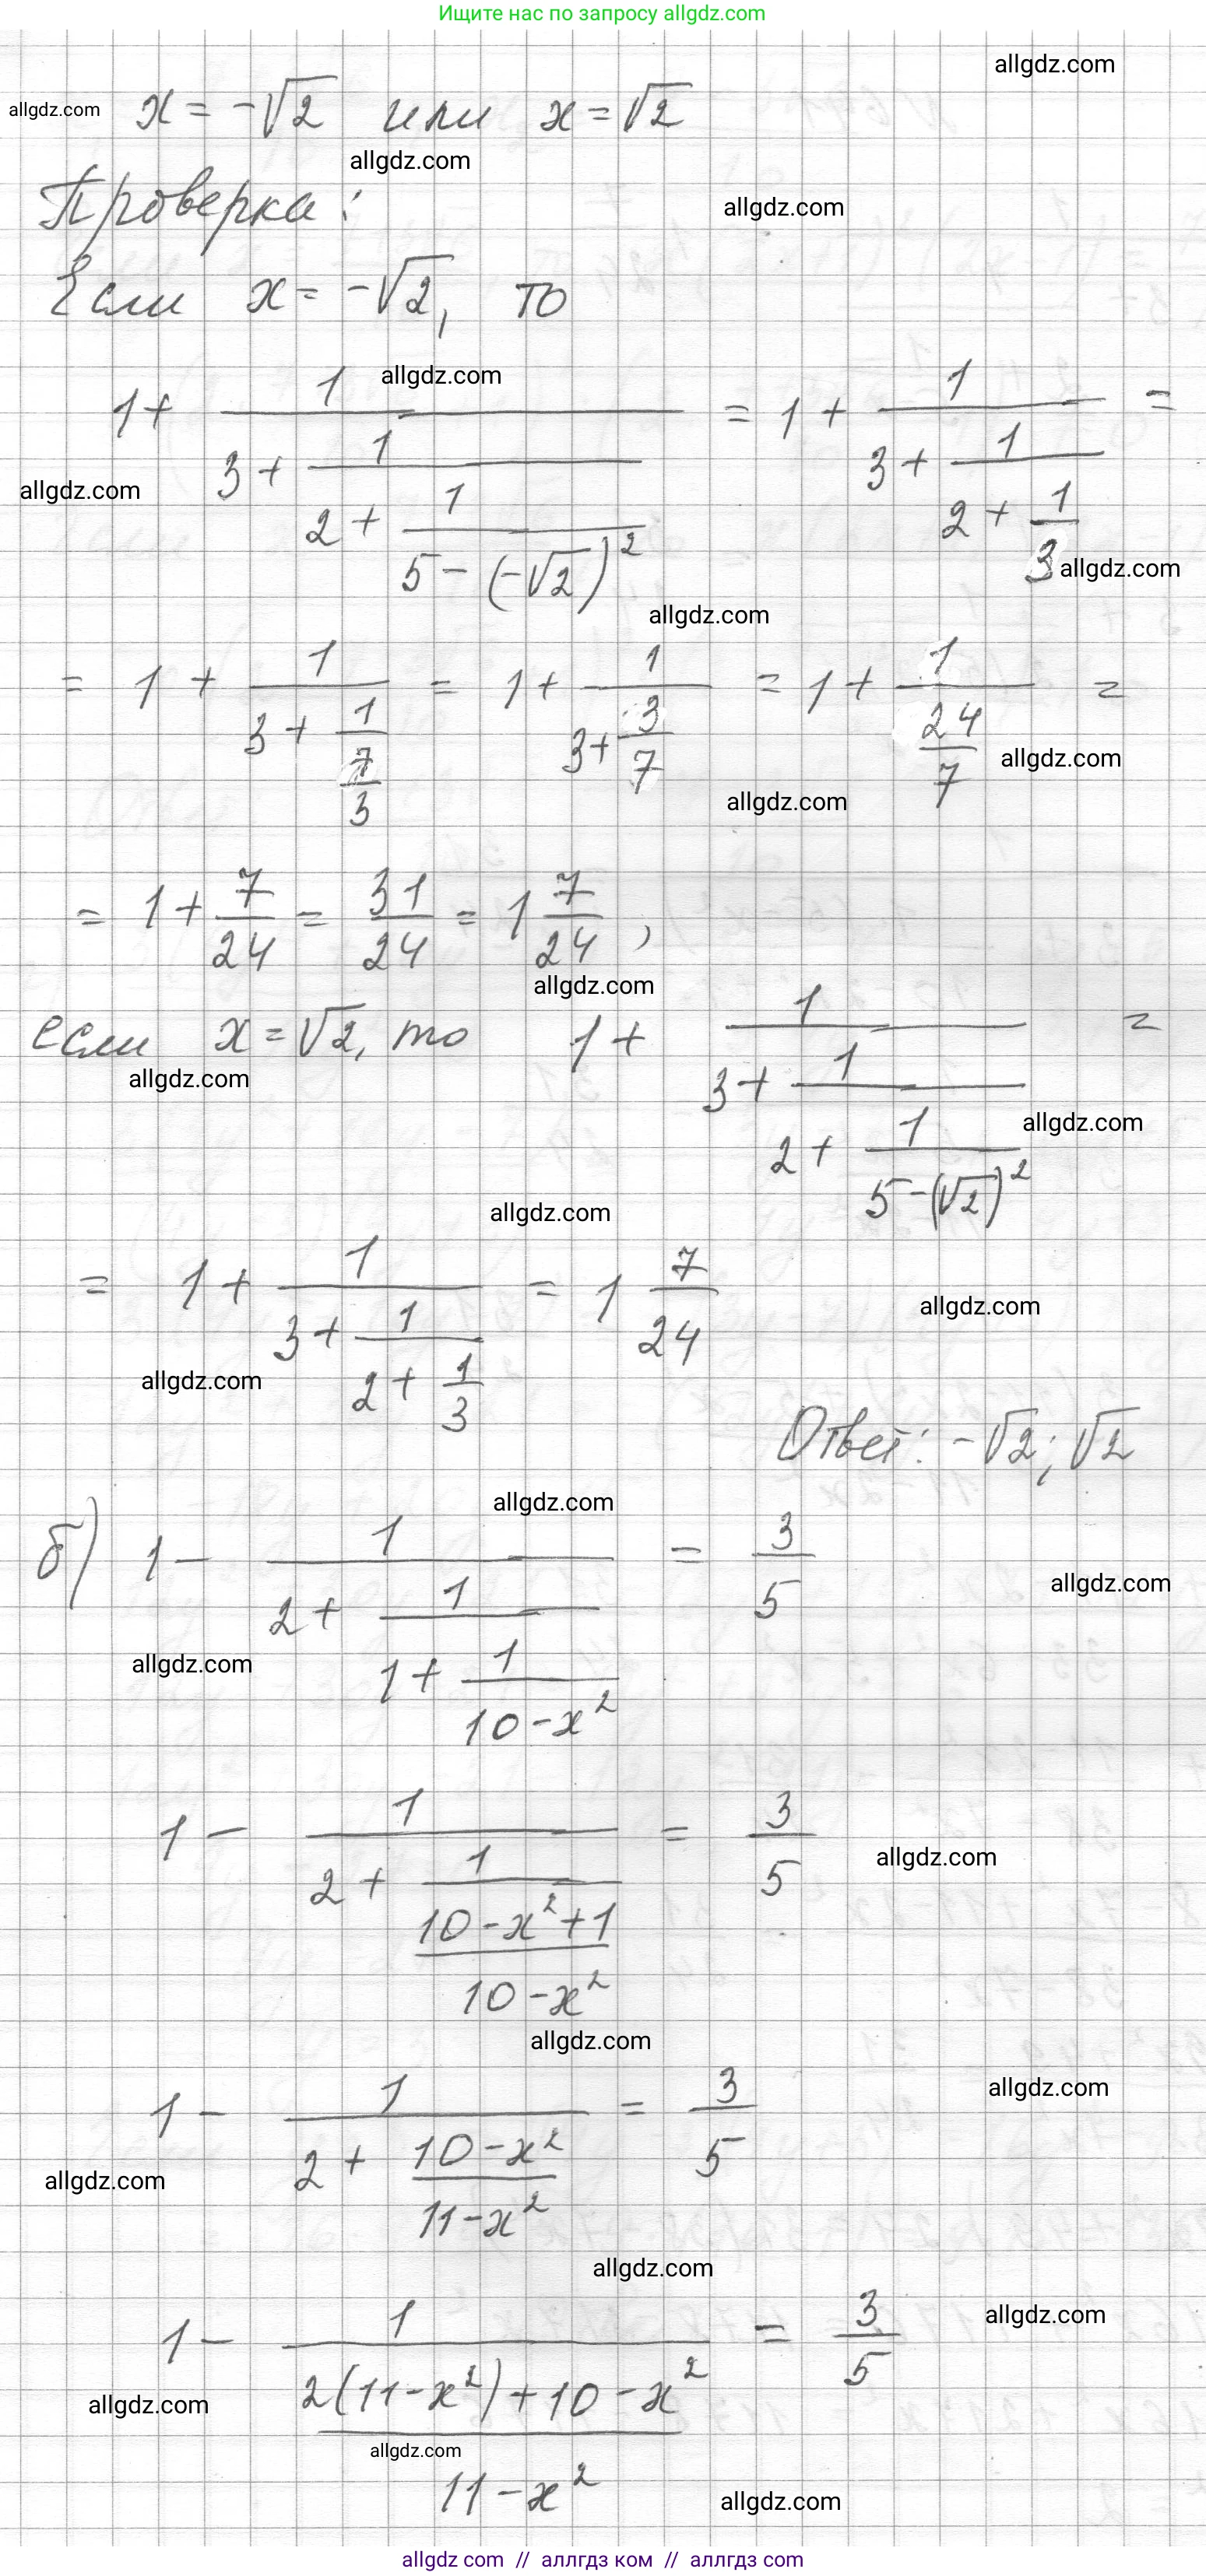 Ищите нас по запросу allgdz.com
allgdz.com
allgdz.com
x = -√2 или x = √2
allgdz.com
Проверка:
allgdz.com
Если x = -√2, то
allgdz.com
1 + 1/(3 + 1/(2 + 1/(5 - (-√2)²))) = 1 + 1/(3 + 1/(2 + 1/3)) =
allgdz.com
allgdz.com
allgdz.com
= 1 + 1/(3 + 1/(7/3)) = 1 + 1/(3 + 3/7) = 1 + 1/(24/7) =
allgdz.com
allgdz.com
= 1 + 7/24 = 31/24 = 1 7/24,
allgdz.com
если x = √2, то 1 + 1/(3 + 1/(2 + 1/(5 - (√2)²))) =
allgdz.com
allgdz.com
allgdz.com
= 1 + 1/(3 + 1/(2 + 1/3)) = 1 7/24
allgdz.com
allgdz.com
Ответ: -√2; √2
allgdz.com
б) 1 - 1/(2 + 1/(1 + 1/(10 - x²))) = 3/5
allgdz.com
allgdz.com
1 - 1/(2 + 1/((10 - x² + 1)/(10 - x²))) = 3/5
allgdz.com
allgdz.com
allgdz.com
1 - 1/(2 + (10 - x²)/(11 - x²)) = 3/5
allgdz.com
allgdz.com
allgdz.com
1 - 1/((2(11 - x²) + 10 - x²)/(11 - x²)) = 3/5
allgdz.com
allgdz.com
allgdz.com
allgdz com // аллгдз ком // аллгдз com